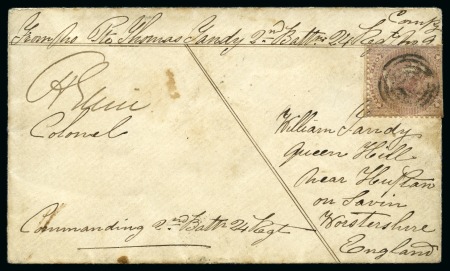 Compy
From No Pte Thomas Gandy 2nd Battn 24 Regt No 9
Colonel
Commanding 2nd Battn 24 Regt
William Gandy
Queen Hill
near Hupton
on Savin
Worstershire
England